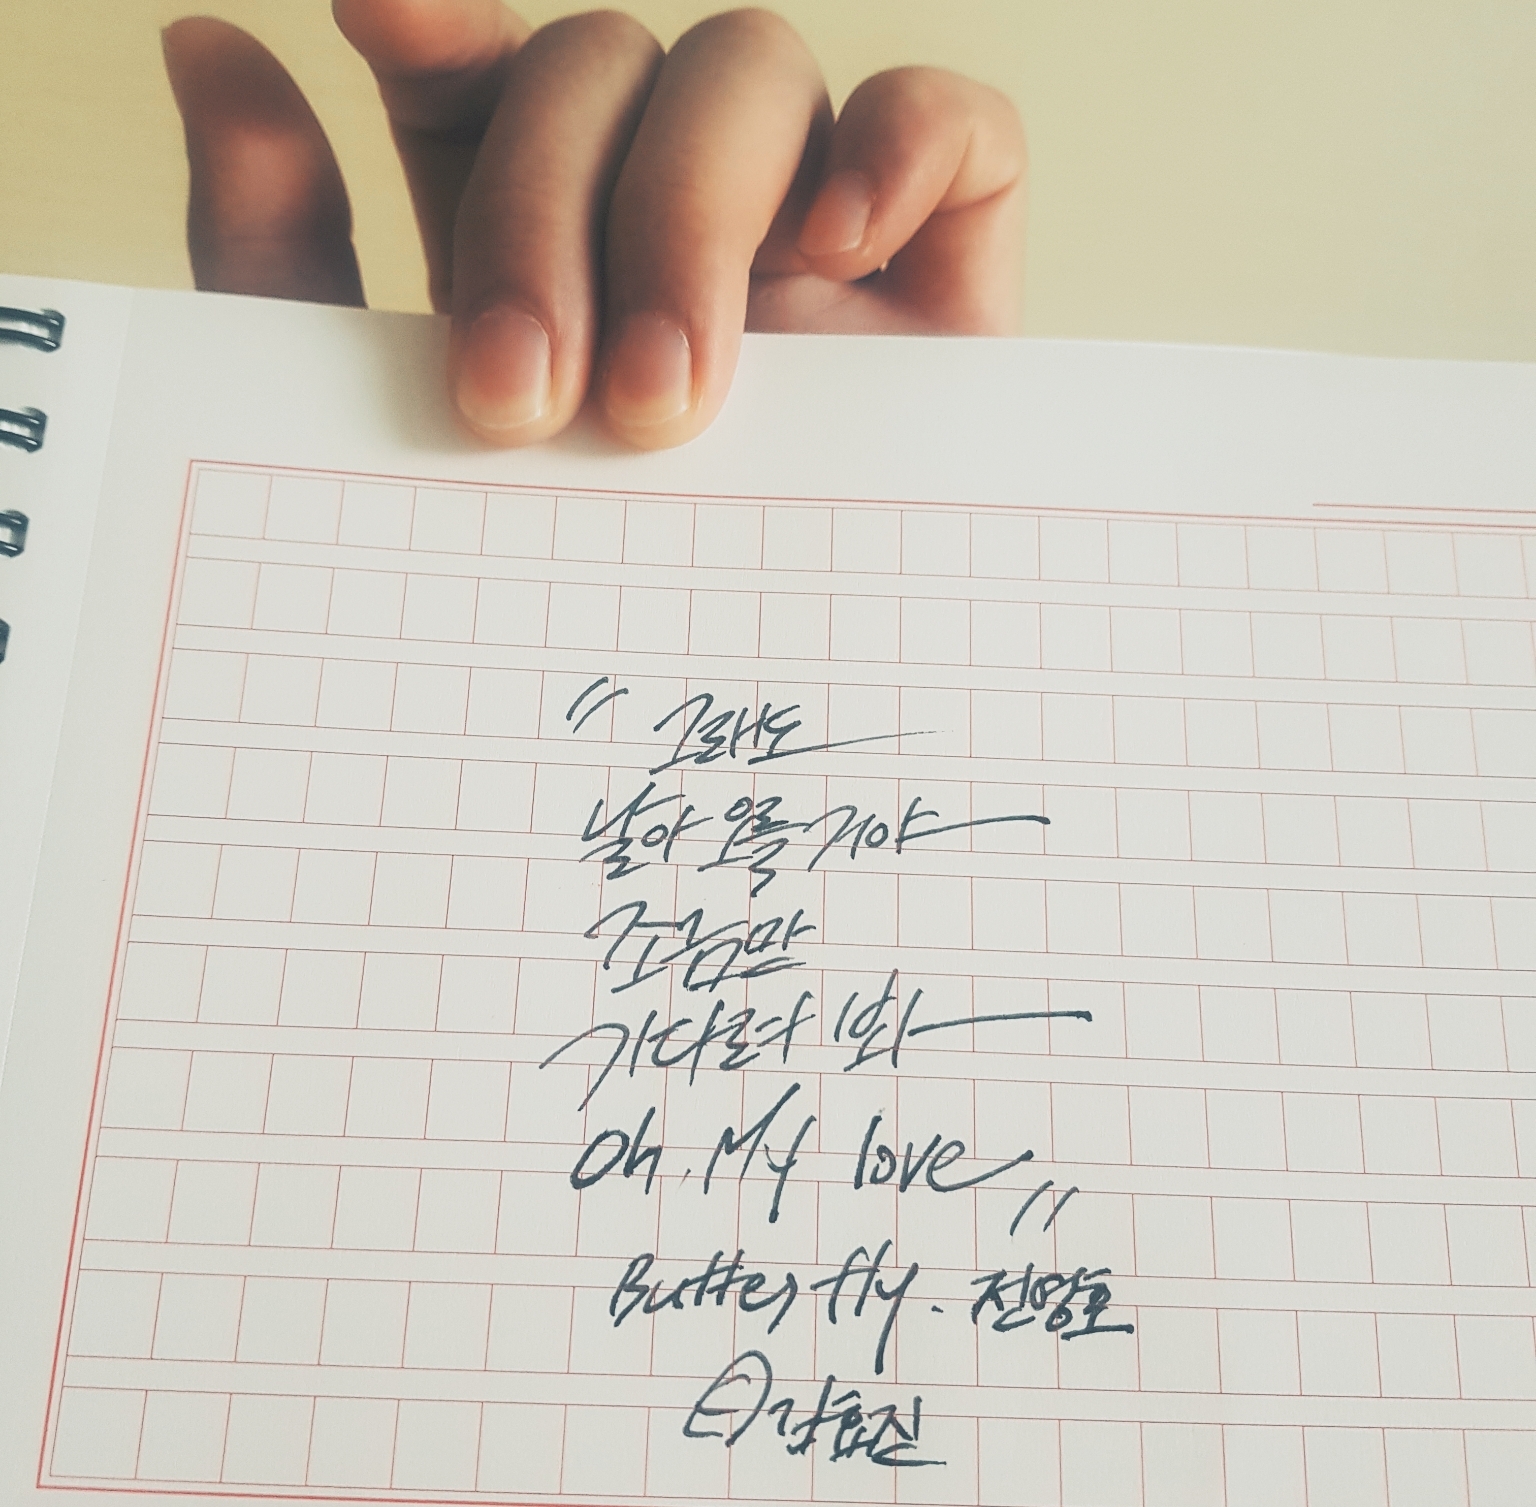 " 그래도
날아 오를 거야
조금만
기다려 봐
Oh, My love "
Butterfly. 전영호
김효진